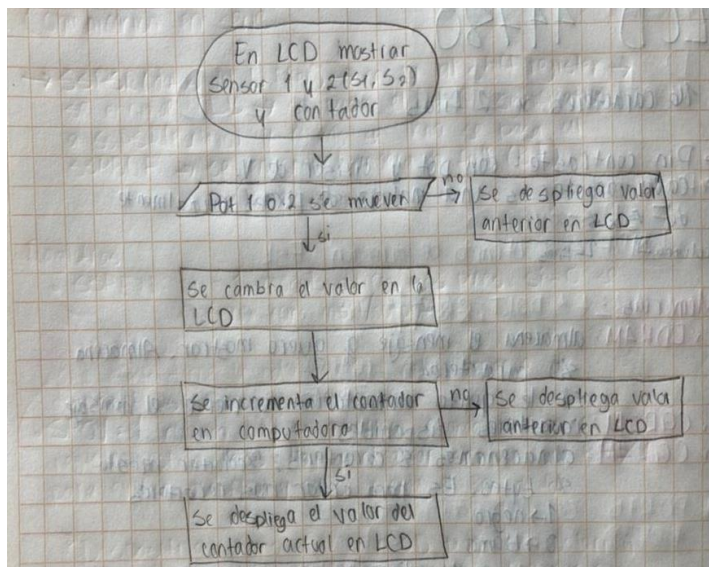 En LCD mostrar
sensor 1 y 2 (S1, S2)
y contador
Pot 1 o 2 se mueven
no
se despliega valor
anterior en LCD
si
Se cambia el valor en la
LCD
Se incrementa el contador
en computadora
no
Se despliega valor
anterior en LCD
si
Se despliega el valor del
contador actual en LCD